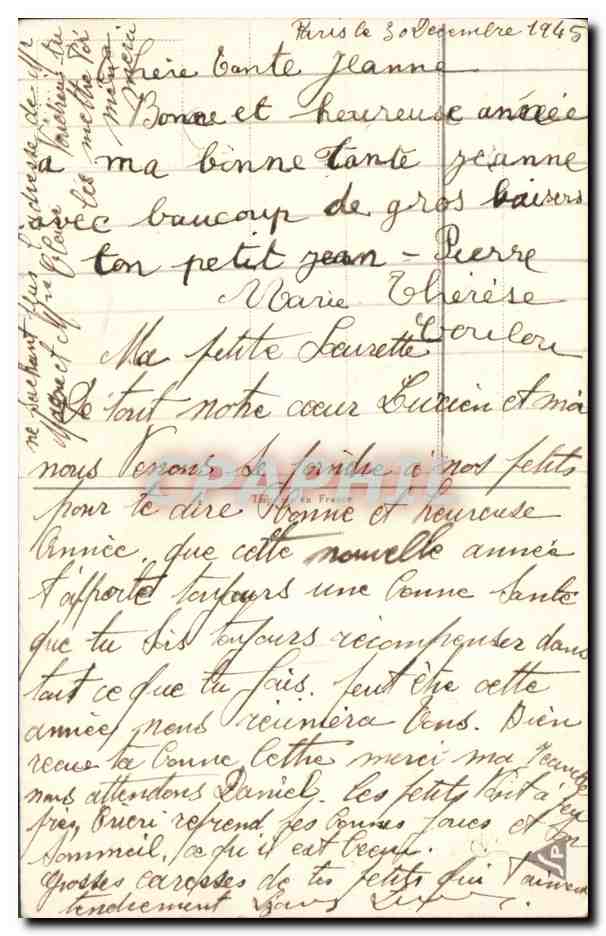 Paris le 30 Decembre 1945
Chère tante Jeanne
Bonne et heureuse année
a ma bonne tante jeanne
avec baucoup de gros baisers
ton petit jean - Pierre
Marie Thérèse
Ma petite
De tout notre coeur Lucien et moi
nous Venons se joindre à nos petits
pour te dire bonne et heureuse
Année que cette nouvelle année
t'apporte toujours une bonne Santé
que tu Sois toujours récompenser dans
tout ce que tu fais. peut être cette
année nous réuniera tous. Bien
reçue ta bonne lettre merci ma
nous attendons Daniel. les petits Vont à peu
près, reprend ses bonnes joues et son
sommeil, ce qu'il est beau.
grosses caresses de tes petits qui t'aiment
tendrement
ne sachant pas l'adresse de
les mettre
merci
DELCAMPHIL
en France